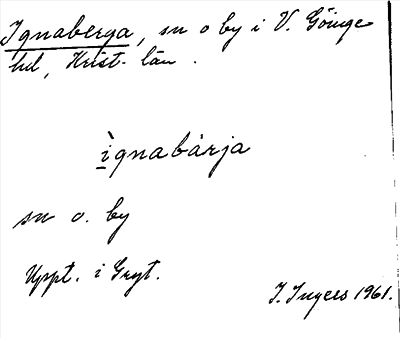 Ignaberga, sn o by i V. Göinge
hd, Krist. län.
ìgnabàrja
sn o. by
Uppt. i Gryt.
I. Ingers 1961.